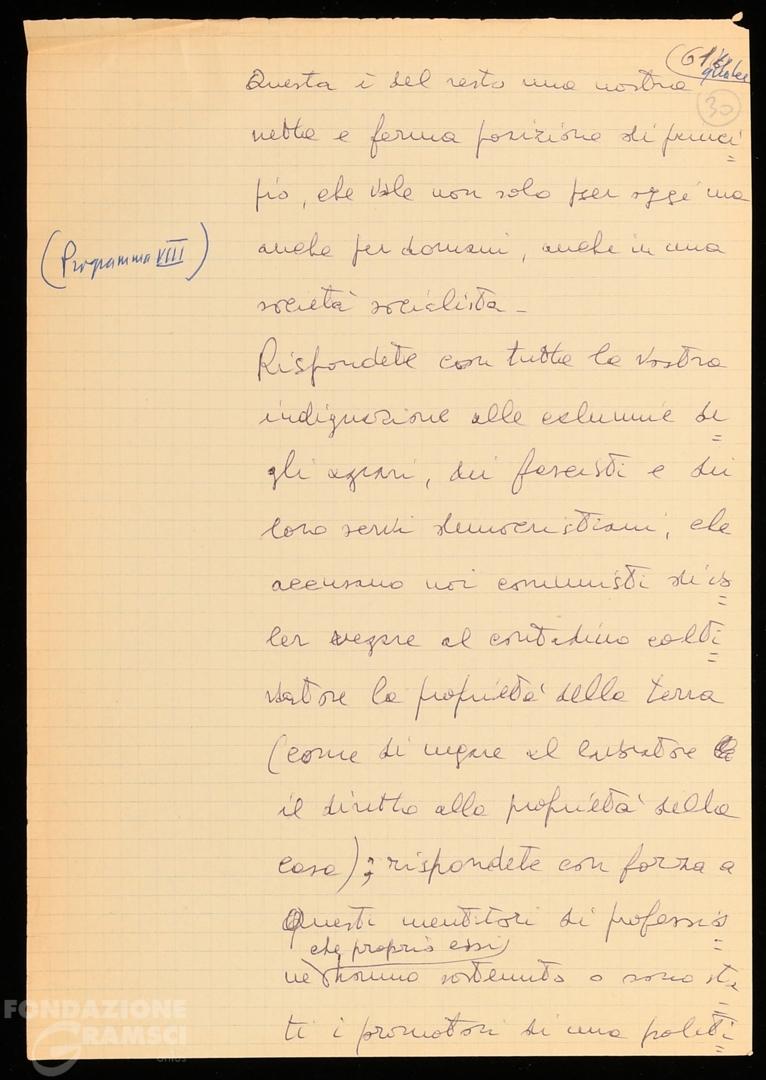 (61
30
Questa è del resto una nostra
netta e ferma posizione di princi=
pio, che vale non solo per oggi ma
anche per domani, anche in una
(Programma VIII)
società socialista –
Rispondete con tutta la vostra
indignazione alle calunnie de=
gli agrari, dei fascisti e dei
loro servi democristiani, che
accusano noi comunisti di vo=
ler negare al contadino colti=
vatore la proprietà della terra
(come di negare al lavoratore
il diritto alla proprietà della
casa); rispondete con forza a
questi mentitori di professio=
che proprio essi
ne hanno sostenuto o sono sta=
ti i promotori di una politi=
FONDAZIONE
GRAMSCI
ONLUS